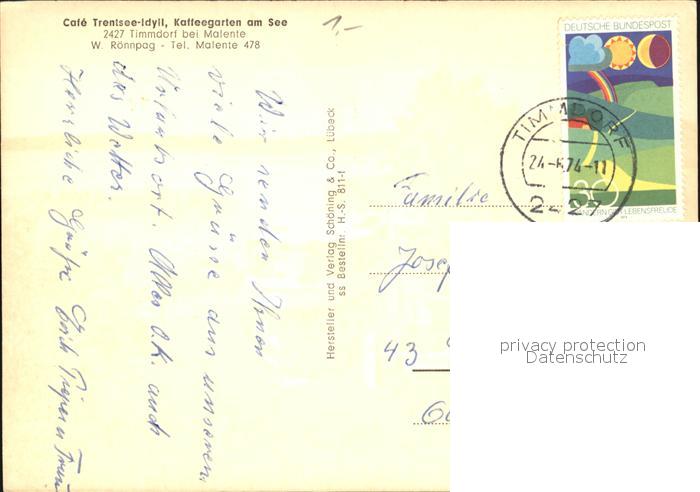 Café Trentsee-Idyll, Kaffeegarten am See
2427 Timmdorf bei Malente
W. Rönnpag - Tel. Malente 478
1,-
Wir senden Ihnen
viele Grüsse aus unseren
Urlaubsort. Alles ok. auch
das Wetter.
Herzliche Grüße
Hersteller und Verlag Schöning & Co., Lübeck
ss Bestellnr. H.-S. 811-f
DEUTSCHE BUNDESPOST
30
WANDERN GIBT LEBENSFREUDE
TIMMDORF
74-11
2427
Familie
Josep
43
privacy protection
Datenschutz